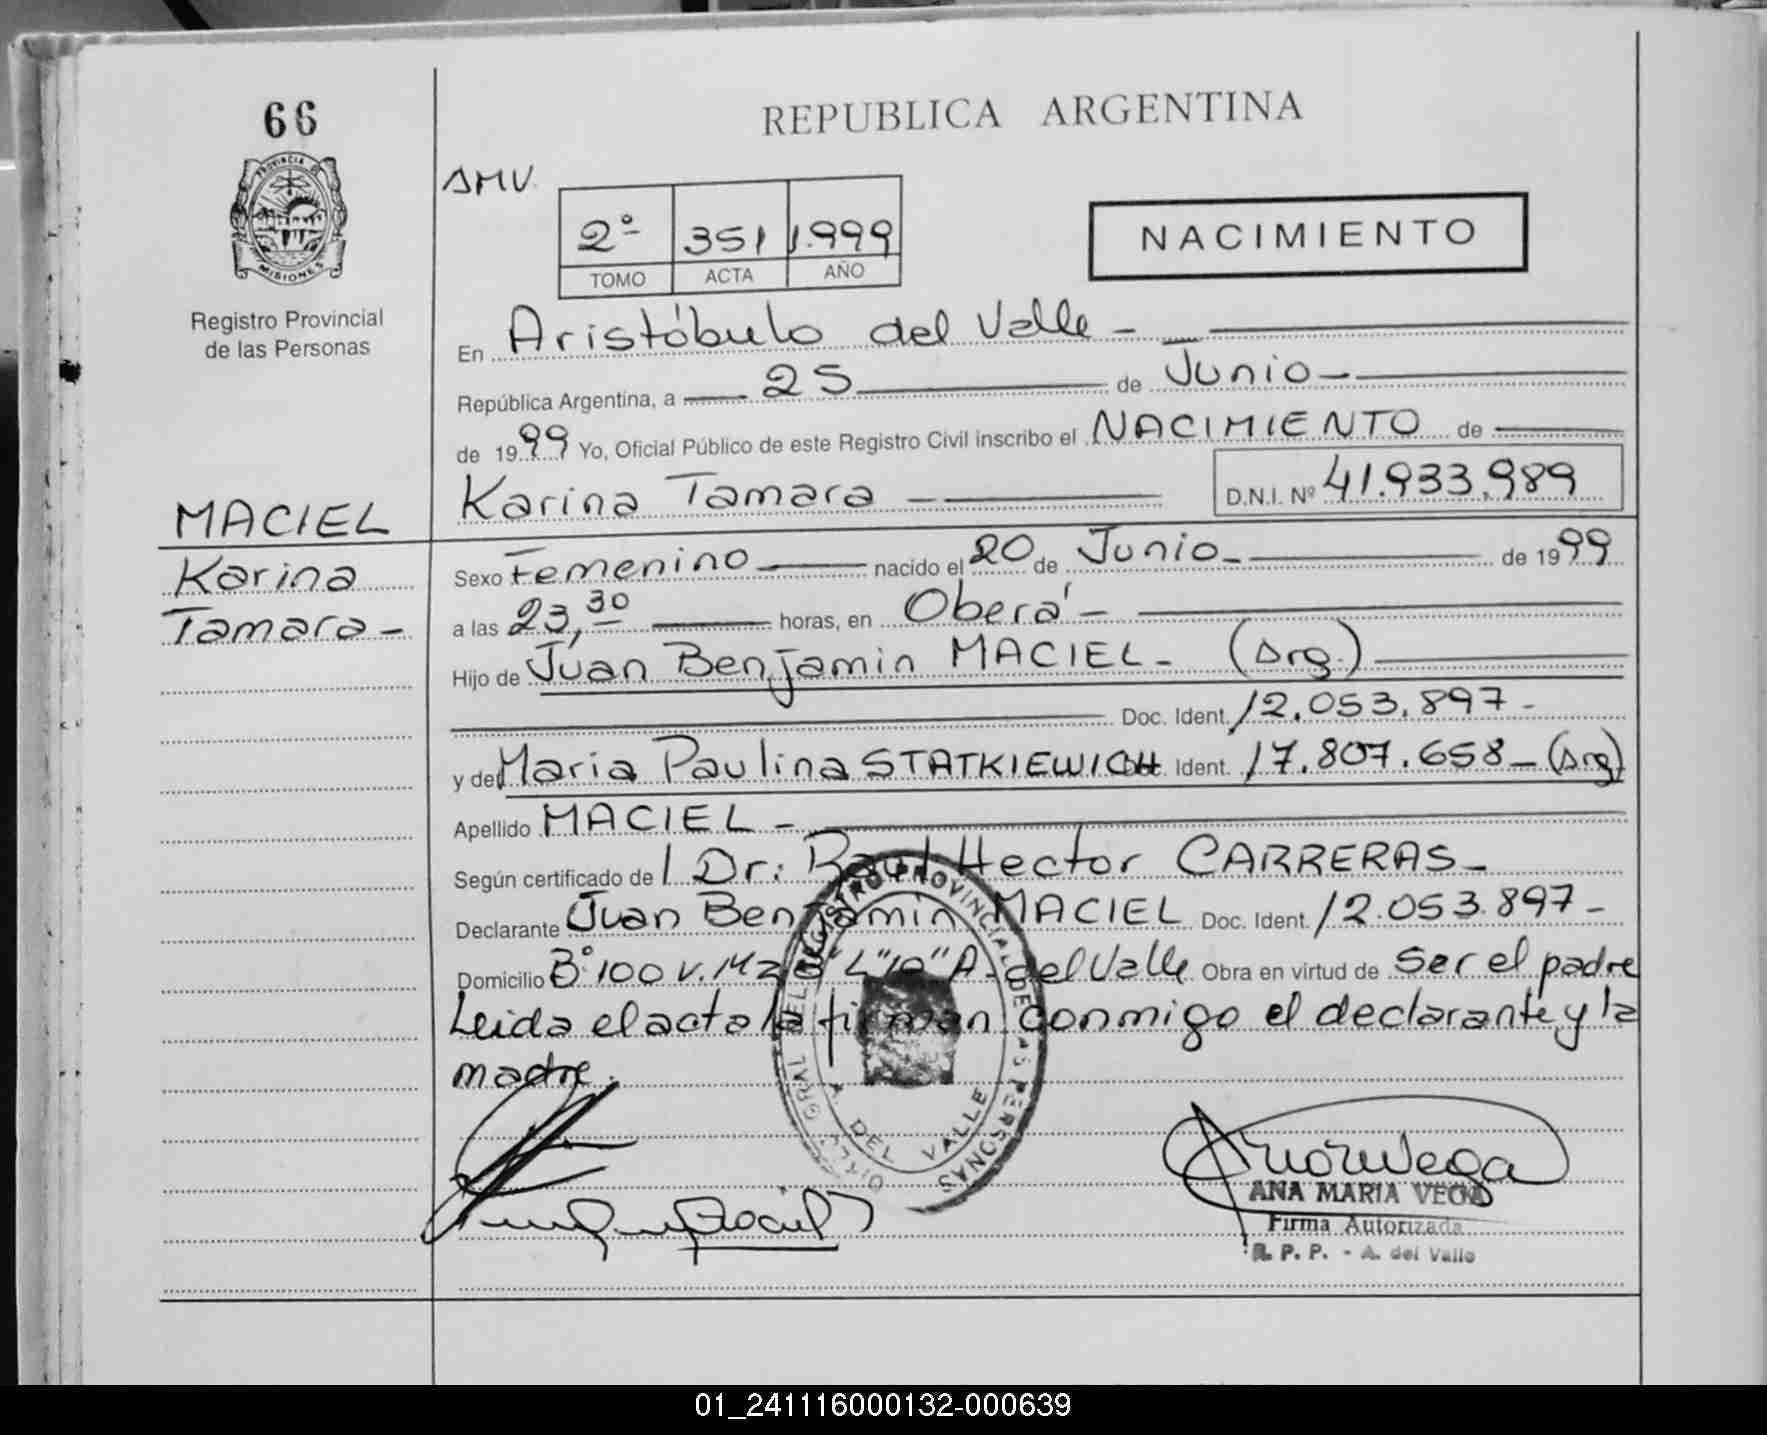 66
REPUBLICA ARGENTINA
AMV
PROVINCIA DE
MISIONES
Registro Provincial
de las Personas
2º 351 1.999
TOMO ACTA AÑO
NACIMIENTO
En Aristóbulo del Valle -
República Argentina, a 25 de Junio -
de 1999 Yo, Oficial Público de este Registro Civil inscribo el NACIMIENTO de
Karina Tamara D.N.I. Nº 41.933.989
MACIEL
Karina
Tamara -
Sexo Femenino nacido el 20 de Junio - de 1999
a las 23,30 horas, en Oberá -
Hijo de Juan Benjamin MACIEL - (Arg.)
Doc. Ident. 12.053.897 -
y de Maria Paulina STATKIEWICH Ident. 17.807.658 - (Arg)
Apellido MACIEL -
Según certificado de l Dr: Raul Hector CARRERAS -
Declarante Juan Benjamin MACIEL Doc. Ident. 12.053.897 -
Domicilio Bº 100 V. Mz "L"10" A. del Valle Obra en virtud de Ser el padre
Leida el acta la firman conmigo el declarante y la
madre.
REGISTRO PROVINCIAL DE LAS PERSONAS
A. DEL VALLE
ANA MARIA VEGA
Firma Autorizada
R. P. P. - A. del Valle
01_241116000132-000639